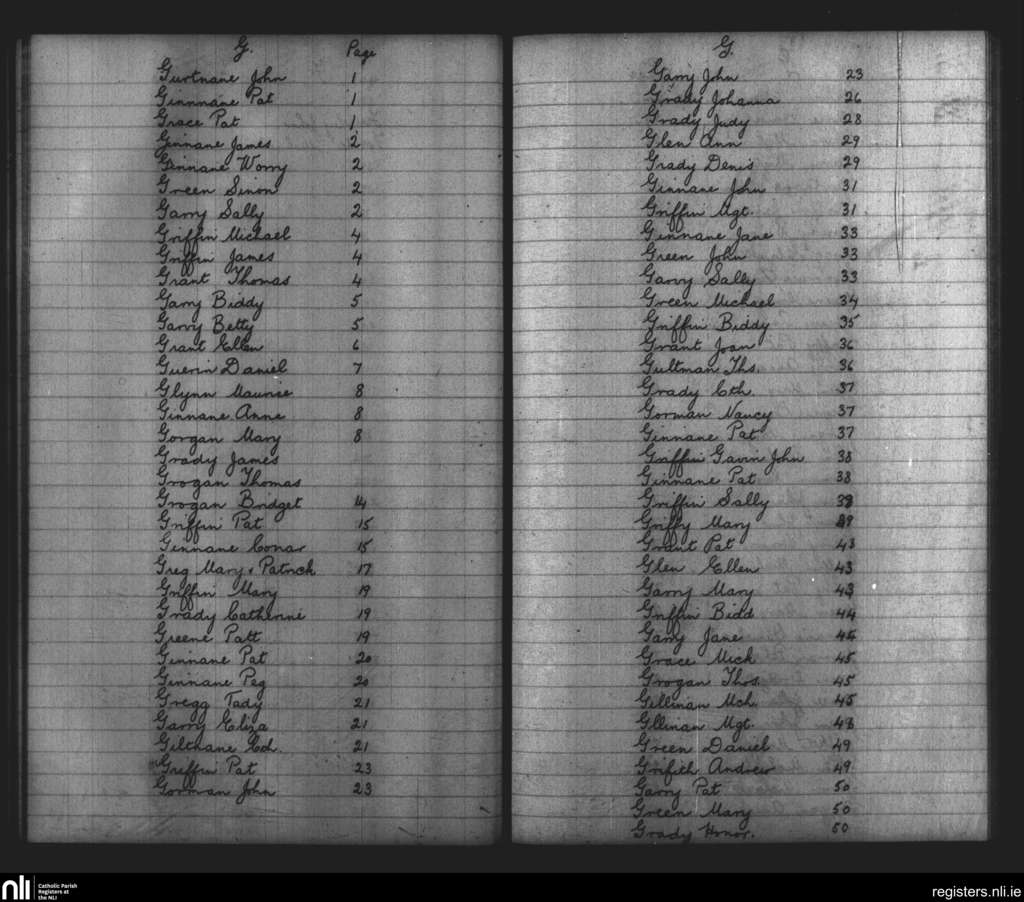 G. Page
Gurtnane John 1
Ginnmane Pat 1
Grace Pat 1
Ginnane James 2
Ginnane Worry 2
Green Sinon 2
Garry Sally 2
Griffin Michael 4
Griffin James 4
Grant Thomas 4
Garry Biddy 5
Garvy Betty 5
Grant Ellen 6
Guerin Daniel 7
Glynn Maurice 8
Ginnane Anne 8
Gorgan Mary 8
Grady James
Grogan Thomas
Grogan Bridget 14
Griffin Pat 15
Ginnane Conar 15
Greg Mary & Patrick 17
Griffin Mary 19
Grady Catherine 19
Greene Patt 19
Ginnane Pat 20
Ginnane Peg 20
Gregg Tady 21
Garry Eliza 21
Gilthane Ed. 21
Griffin Pat 23
Gorman John 23
G.
Garry John 23
Grady Johanna 26
Grady Judy 28
Glen Ann 29
Grady Denis 29
Ginnane John 31
Griffin Mgt. 31
Ginnane Jane 33
Green John 33
Garvy Sally 33
Green Michael 34
Griffin Biddy 35
Grant Joan 36
Gultman Ths. 36
Grady Cth. 37
Gorman Nancy 37
Ginnane Pat 37
Griffin Gavin John 38
Ginnane Pat 38
Griffin Sally 38
Griffy Mary
Grant Pat 43
Glen Ellen 43
Garry Mary 43
Griffin Bidd 44
Garry Jane 45
Grace Mick 45
Grogan Thos. 45
Gillinan Mch. 45
Gllinan Mgt. 48
Green Daniel 49
Grifith Andrew 49
Garry Pat 50
Green Mary 50
Grady Honor. 50
nli Catholic Parish
Registers at
the NLI
registers.nli.ie